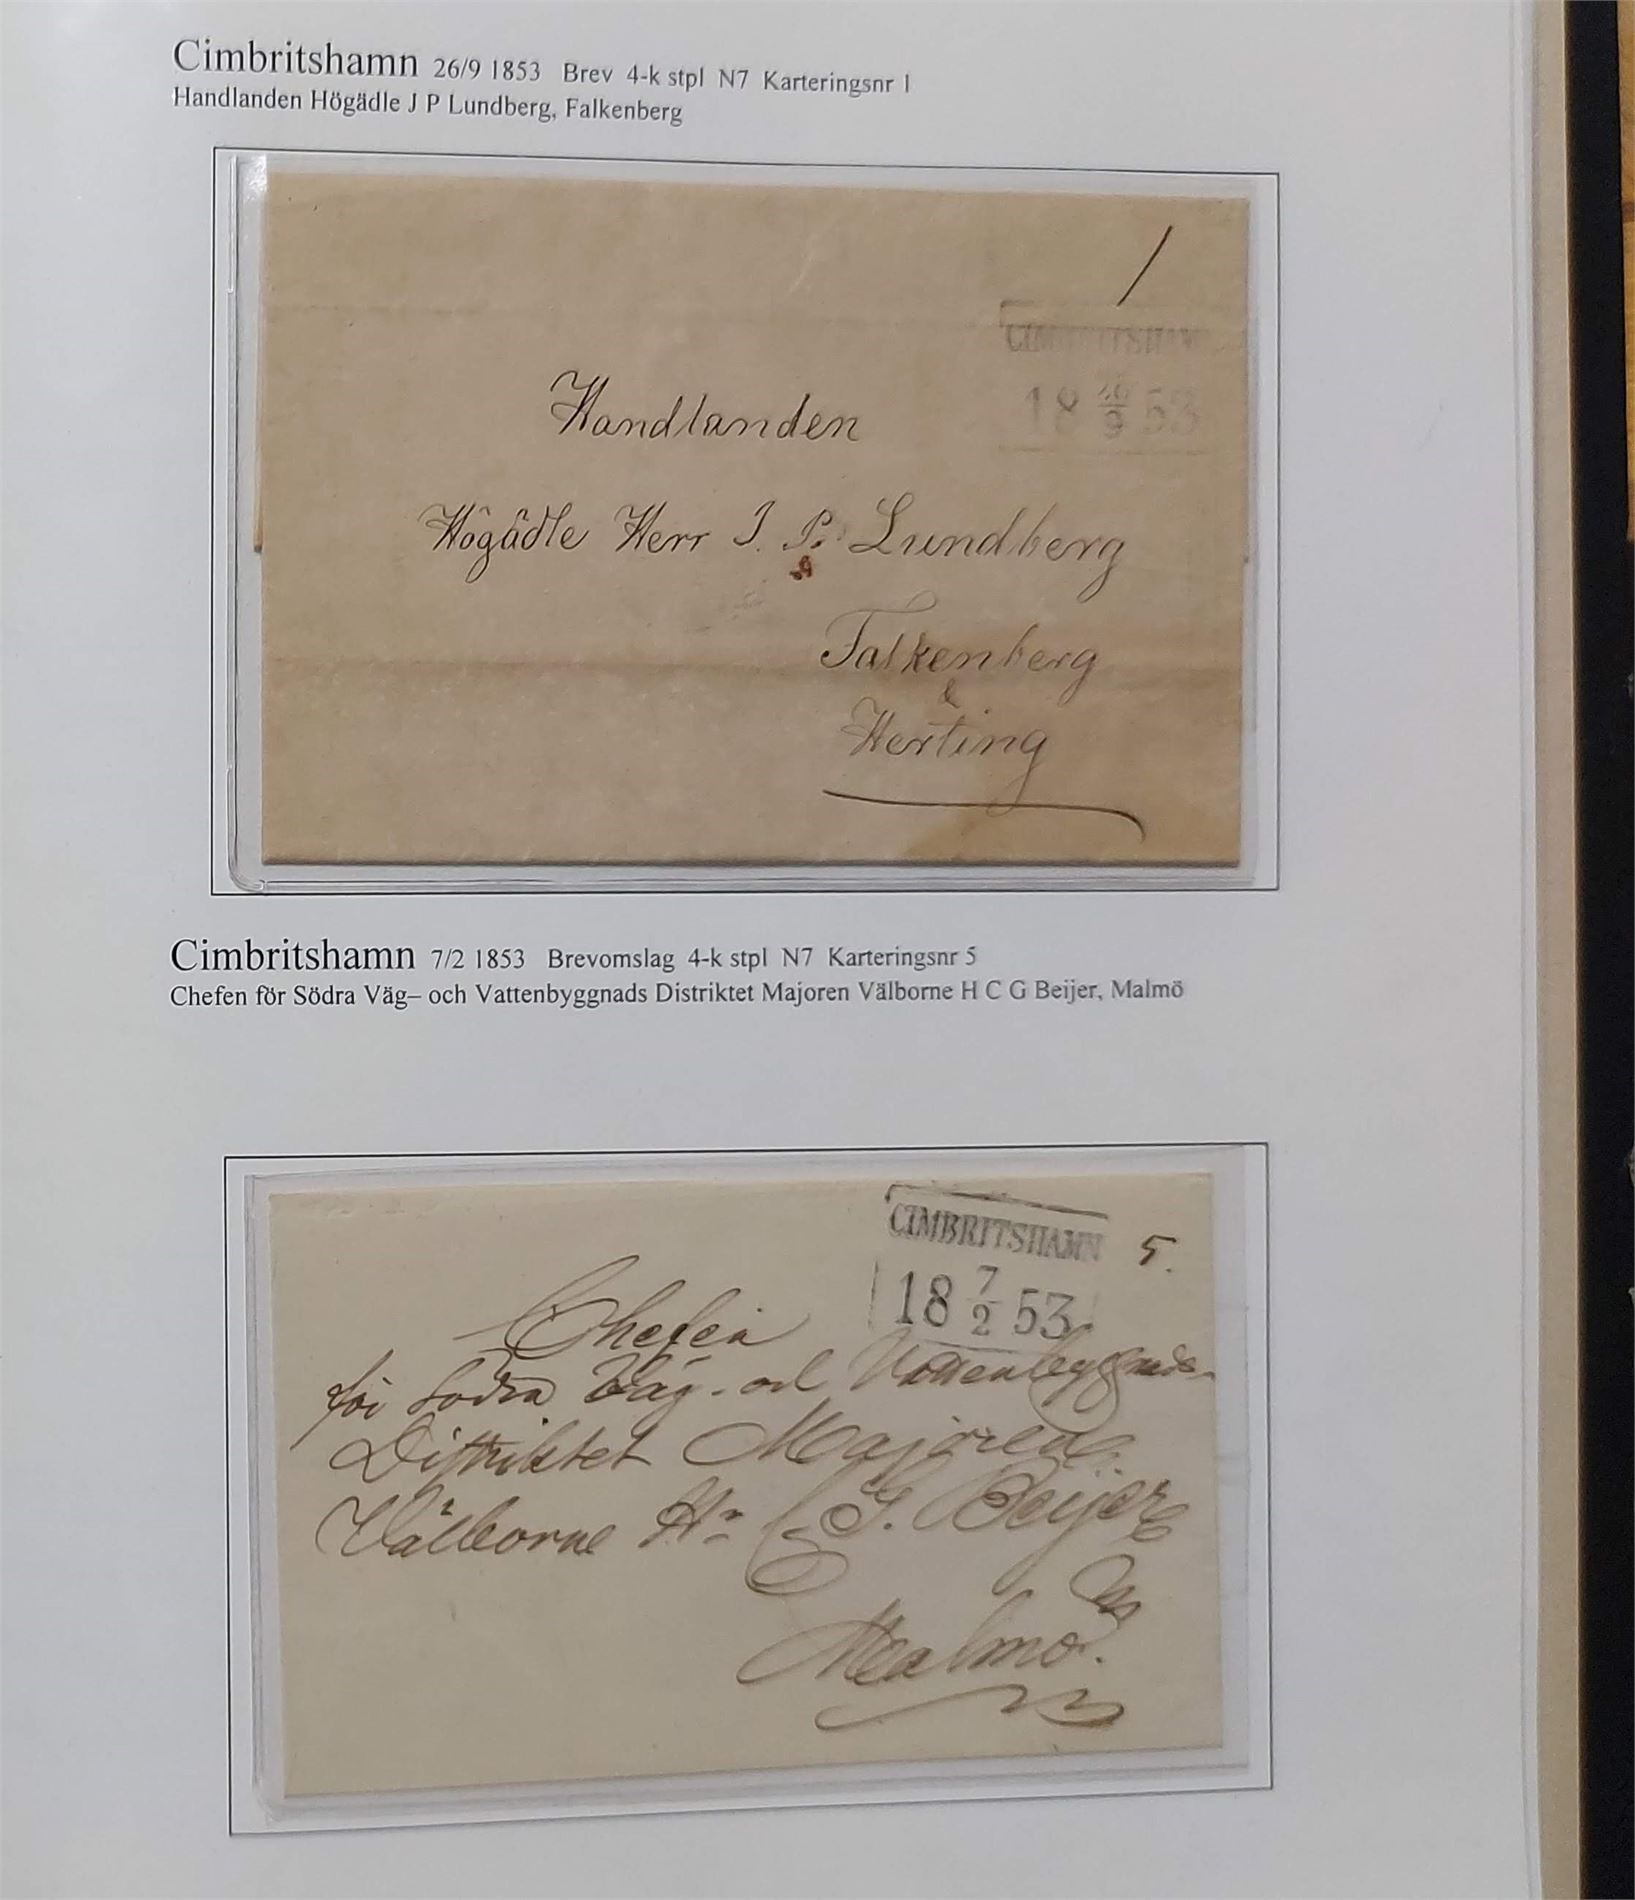 Cimbritshamn 26/9 1853 Brev 4-k stpl N7 Karteringsnr 1
Handlanden Högädle J P Lundberg, Falkenberg
/
CIMBRITSHAMN
18 26/9 53
Handlanden
Högädle Herr J. P. Lundberg
Falkenberg
&
Herting
Cimbritshamn 7/2 1853 Brevomslag 4-k stpl N7 Karteringsnr 5
Chefen för Södra Väg– och Vattenbyggnads Distriktet Majoren Välborne H C G Beijer, Malmö
CIMBRITSHAMN 5.
18 7/2 53
Chefen
för Södra Väg- och Vattenbyggnads-
Distriktet Majoren
Välborne Hr C G. Beijer
Malmö.